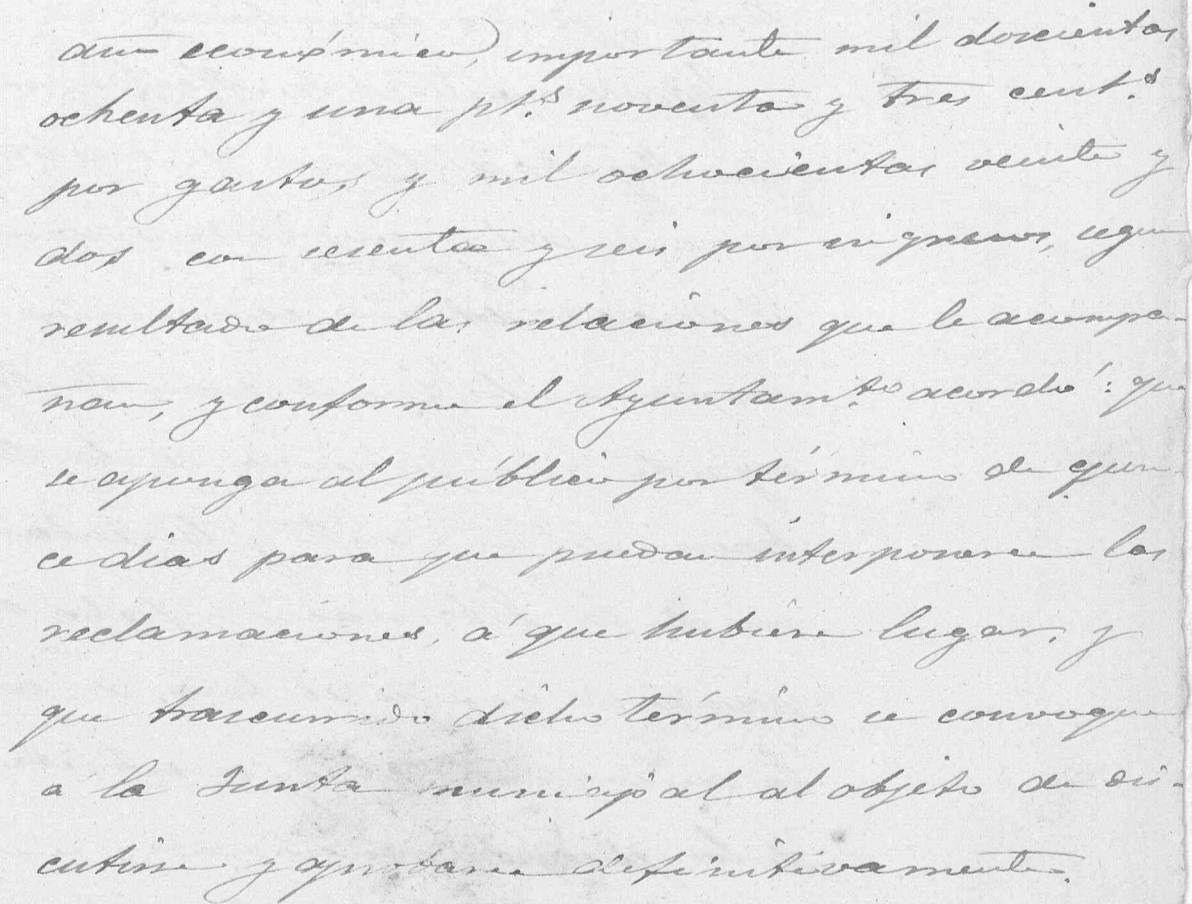 año económico, importante mil doscientas
ochenta y una pt.s noventa y tres cent.s
por gastos, y mil ochocientas veinte y
dos con sesenta y seis por ingresos, segun
resultado de las relaciones que le acompa-
ñan, y conforme el Ayuntam.to acordó: que
se aponga al público por término de quin-
ce dias para que puedan interponerse las
reclamaciones, á que hubiere lugar, y
que trascurrido dicho término se convoque
a la Junta municipal al objeto de dis-
cutirse y aprobarse definitivamente.